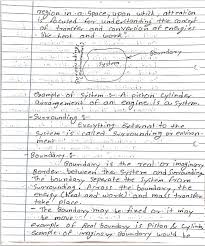 region in a space, upon which, attention
is focused for understanding the concept
of transfer and conversion of energies
like heat and work.
Boundary
System
Example of System :- A piston cylinder
arrangement of an engine is a System.
Surrounding :-
Everything External to the
System is called Surrounding or environ-
ment
Boundary :-
Boundary is the real or imaginary
Border between the System and Surrounding.
The boundary Separate the System from
Surrounding. Across the boundary, the
energy (heat and work) and mass transfer
take place.
- The Boundary may be fixed or it may
be move.
Example of Real boundary is Piston & Cylinder
Example of imaginary Boundary would be